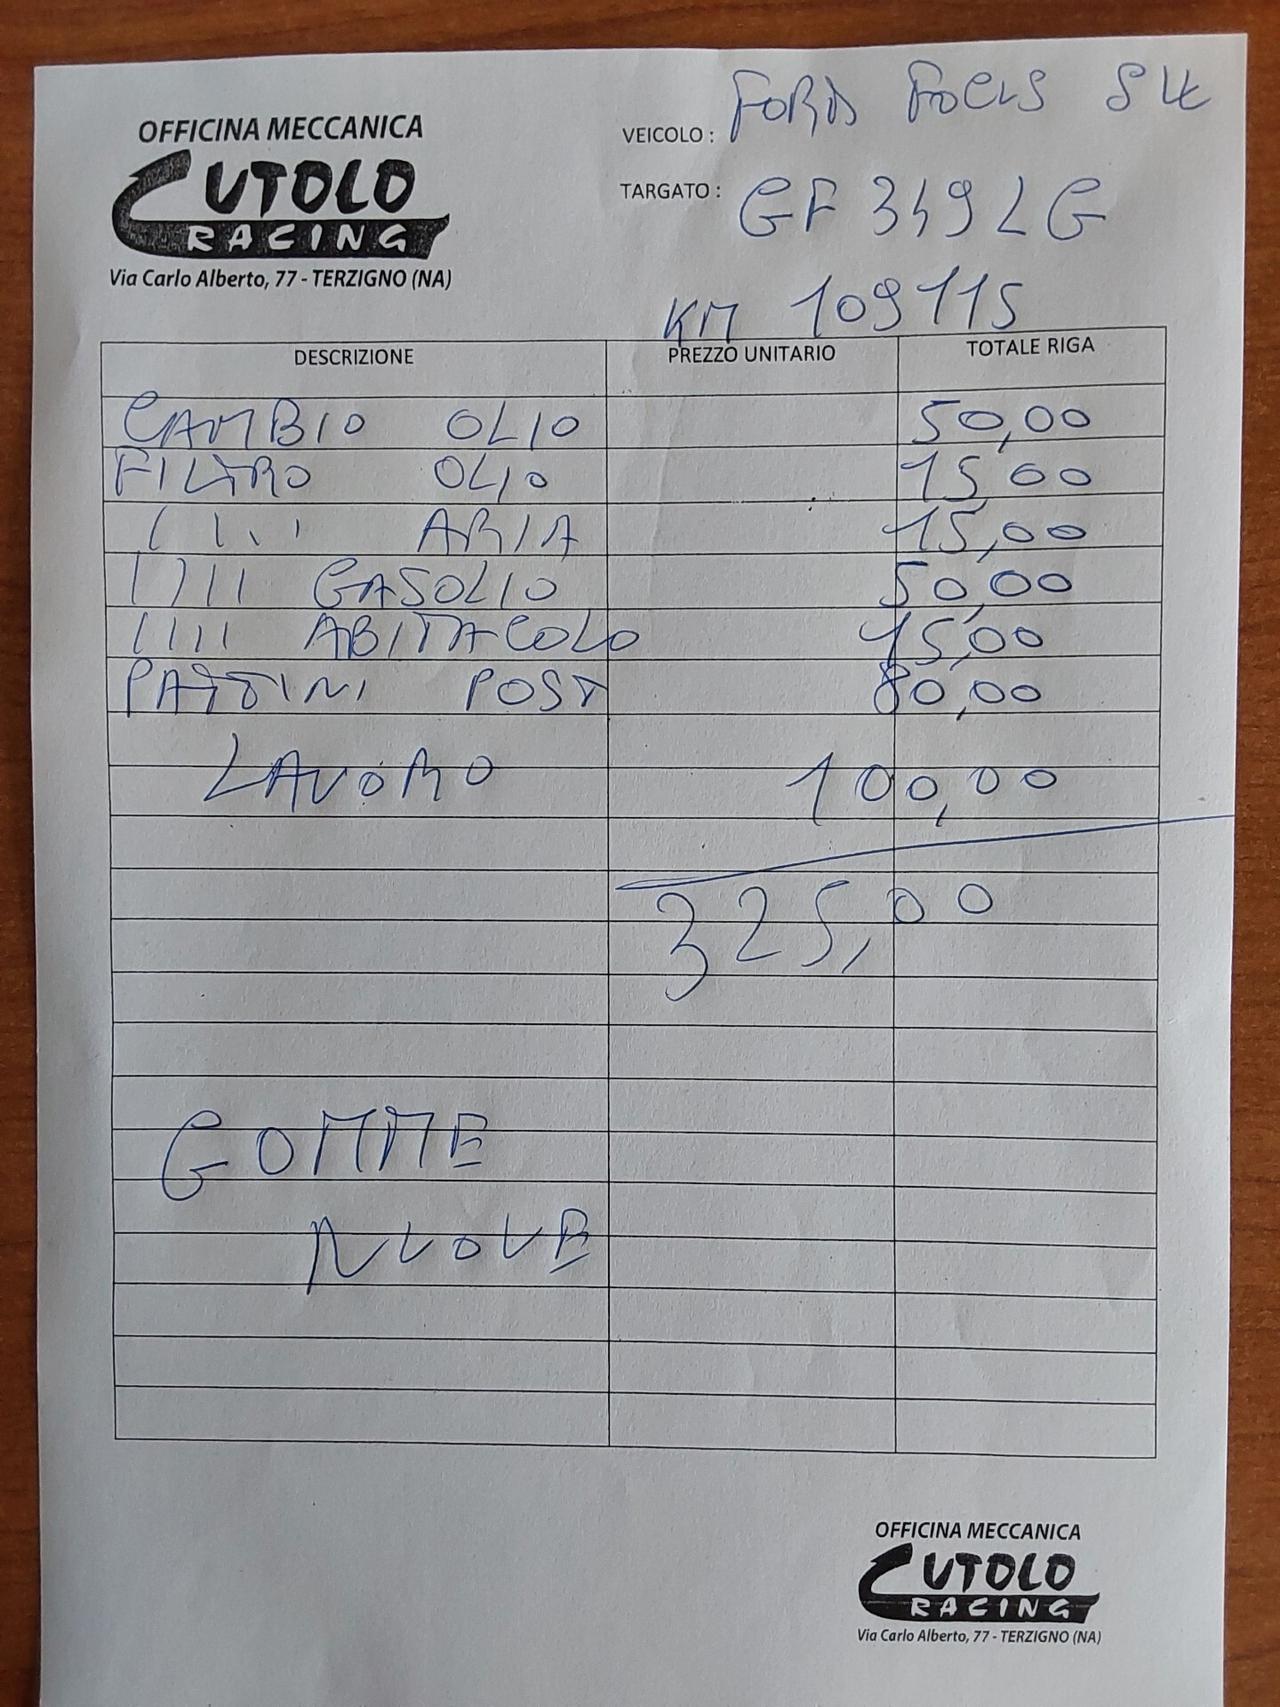 OFFICINA MECCANICA
CUTOLO
RACING
Via Carlo Alberto, 77 - TERZIGNO (NA)
VEICOLO : FORD FOCUS SW
TARGATO : GF 349 LG
KM 109115
DESCRIZIONE PREZZO UNITARIO TOTALE RIGA
CAMBIO OLIO 50,00
FILTRO OLIO 15,00
1111 ARIA 15,00
1111 GASOLIO 50,00
1111 ABITACOLO 15,00
PATTINI POST 80,00
LAVORO 100,00
325,00
GOMME
NUOVE
OFFICINA MECCANICA
CUTOLO
RACING
Via Carlo Alberto, 77 - TERZIGNO (NA)